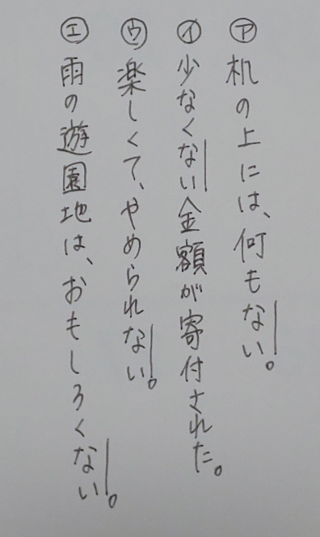 ㋐ 机の上には、何もない。
㋑ 少なくない金額が寄付された。
㋒ 楽しくて、やめられない。
㋓ 雨の遊園地は、おもしろくない。